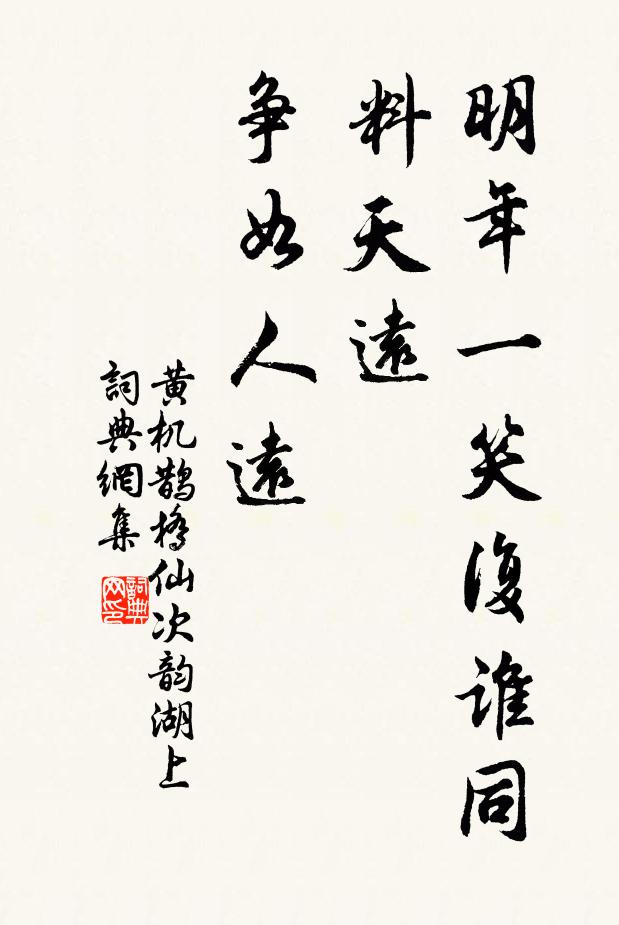 明年一笑復誰同
料天遠
争如人遠
黄机鹊橋仙次韵湖上
詞典網集
詞典
网印